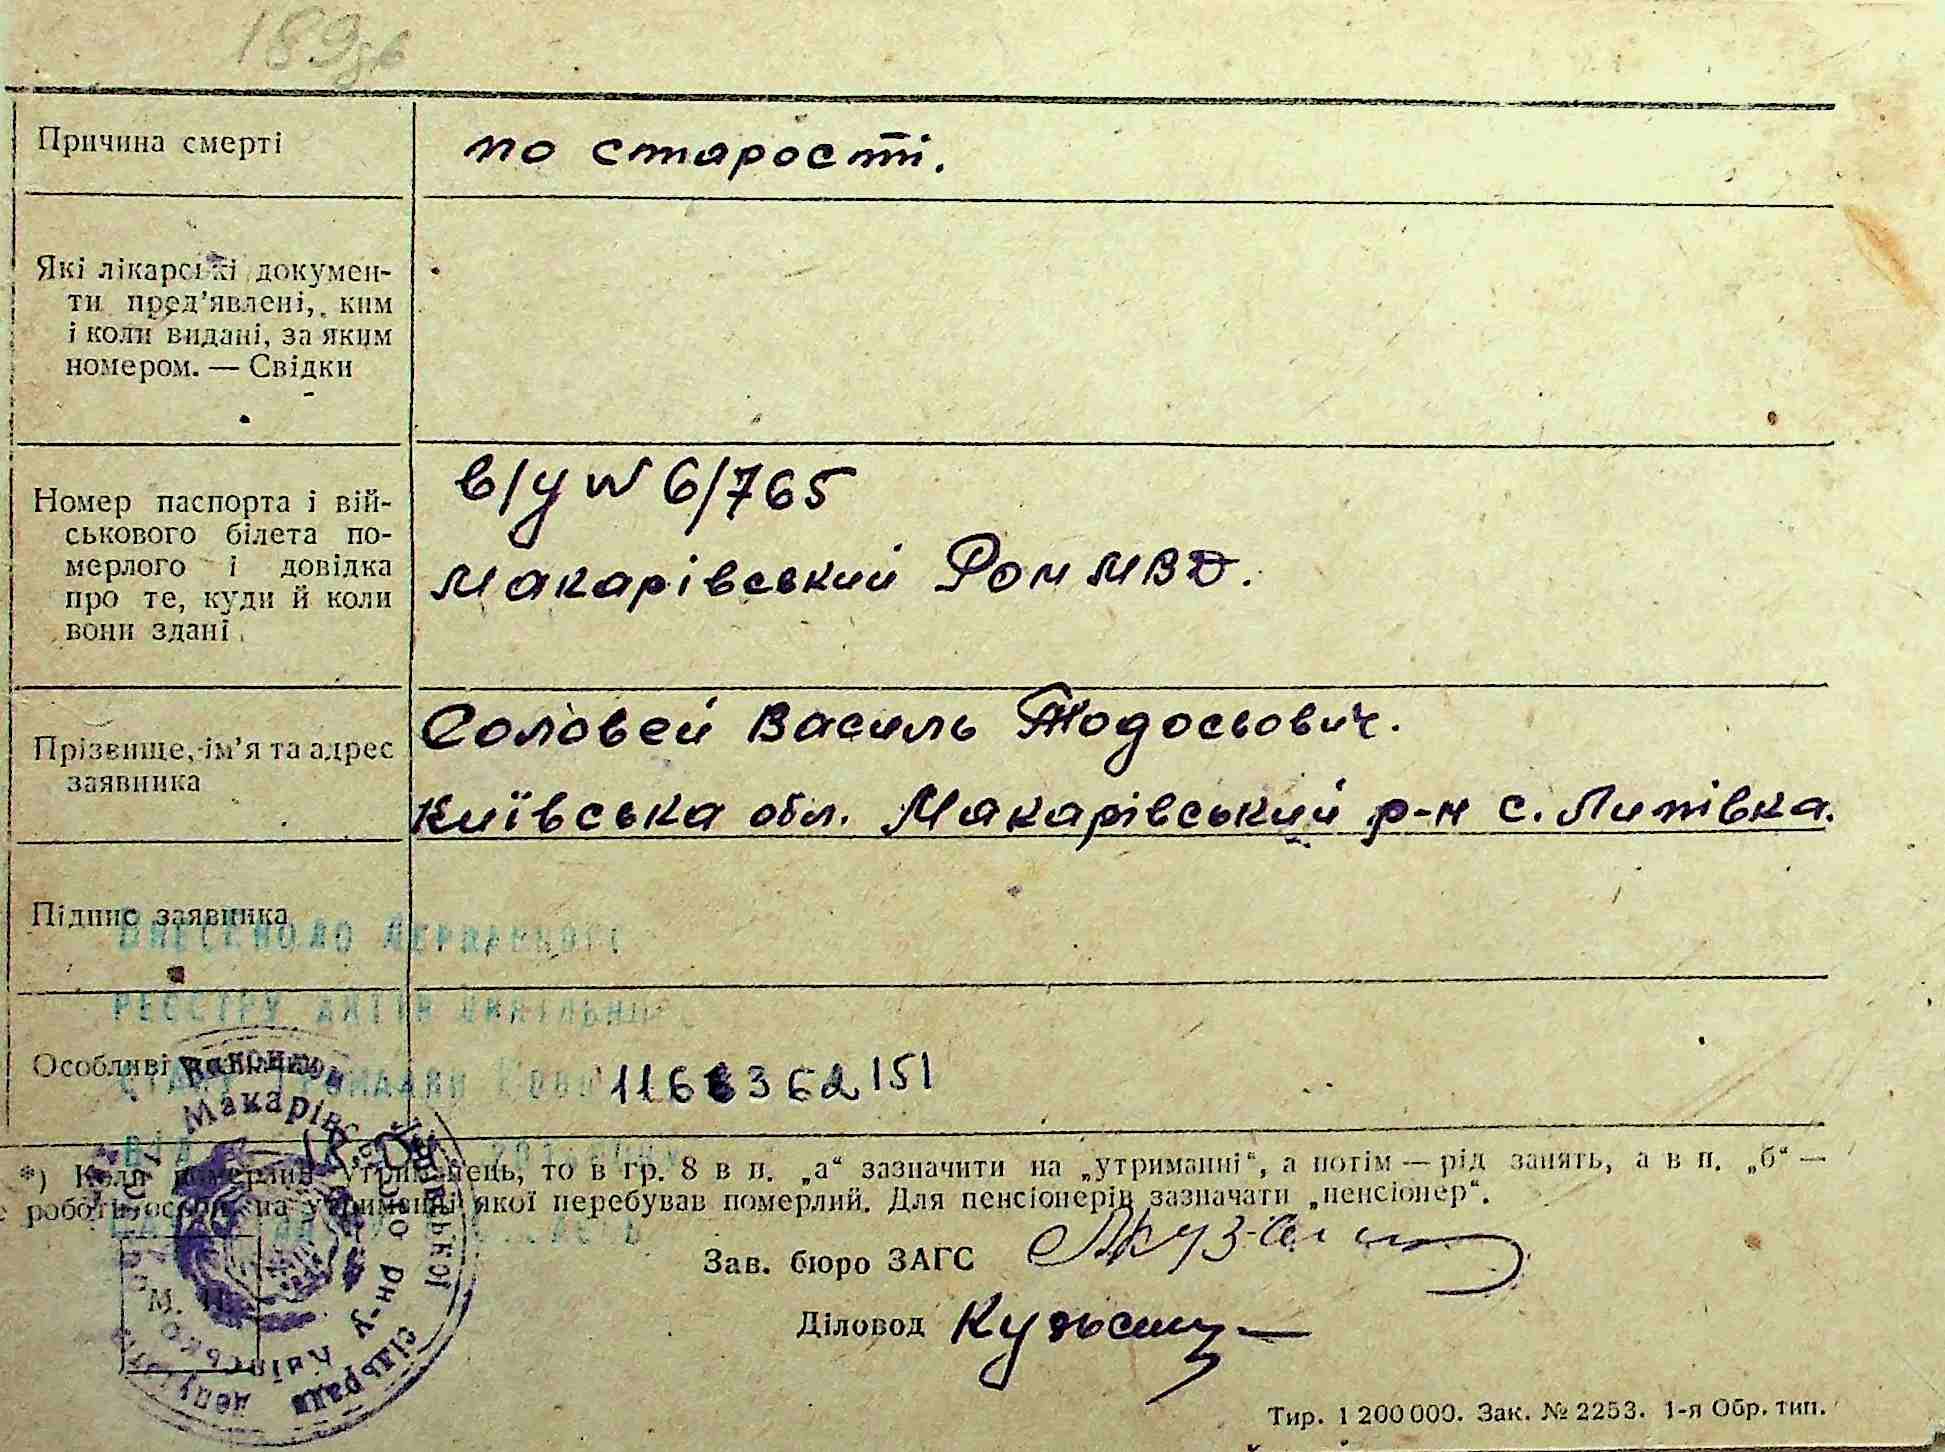 189
Причина смерті
по старості.
Які лікарські докумен-
ти пред'явлені, ким
і коли видані, за яким
номером. — Свідки
Номер паспорта і вій-
ськового білета по-
мерлого і довідка
про те, куди й коли
вони здані
в/у N 6/765
Макарівський Ром МВД.
Прізвище, ім'я та адрес
заявника
Соловей Василь Тодосьович.
Київська обл. Макарівський р-н с. Липівка.
Підпис заявника
ВНЕСЕНО ДО ДЕРЖАВНОГО
РЕЄСТРУ АКТІВ ЦИВІЛЬНОГО
СТАНУ ГРОМАДЯН
Особливі
151
*) Коли померлий утриманець, то в гр. 8 в п. „а“ зазначити на „утриманні“, а потім — рід занять, а в п. „б“ —
роботи особи, на утриманні якої перебував померлий. Для пенсіонерів зазначати „пенсіонер“.
Зав. бюро ЗАГС
Діловод
М. П.
Виконком
Макарівського р-ну Київської
сільради депутатів
Тир. 1 200 000. Зак. № 2253. 1-я Обр. тип.